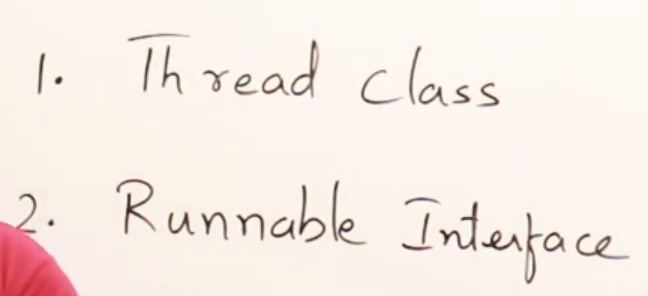 1. Thread class
2. Runnable Interface